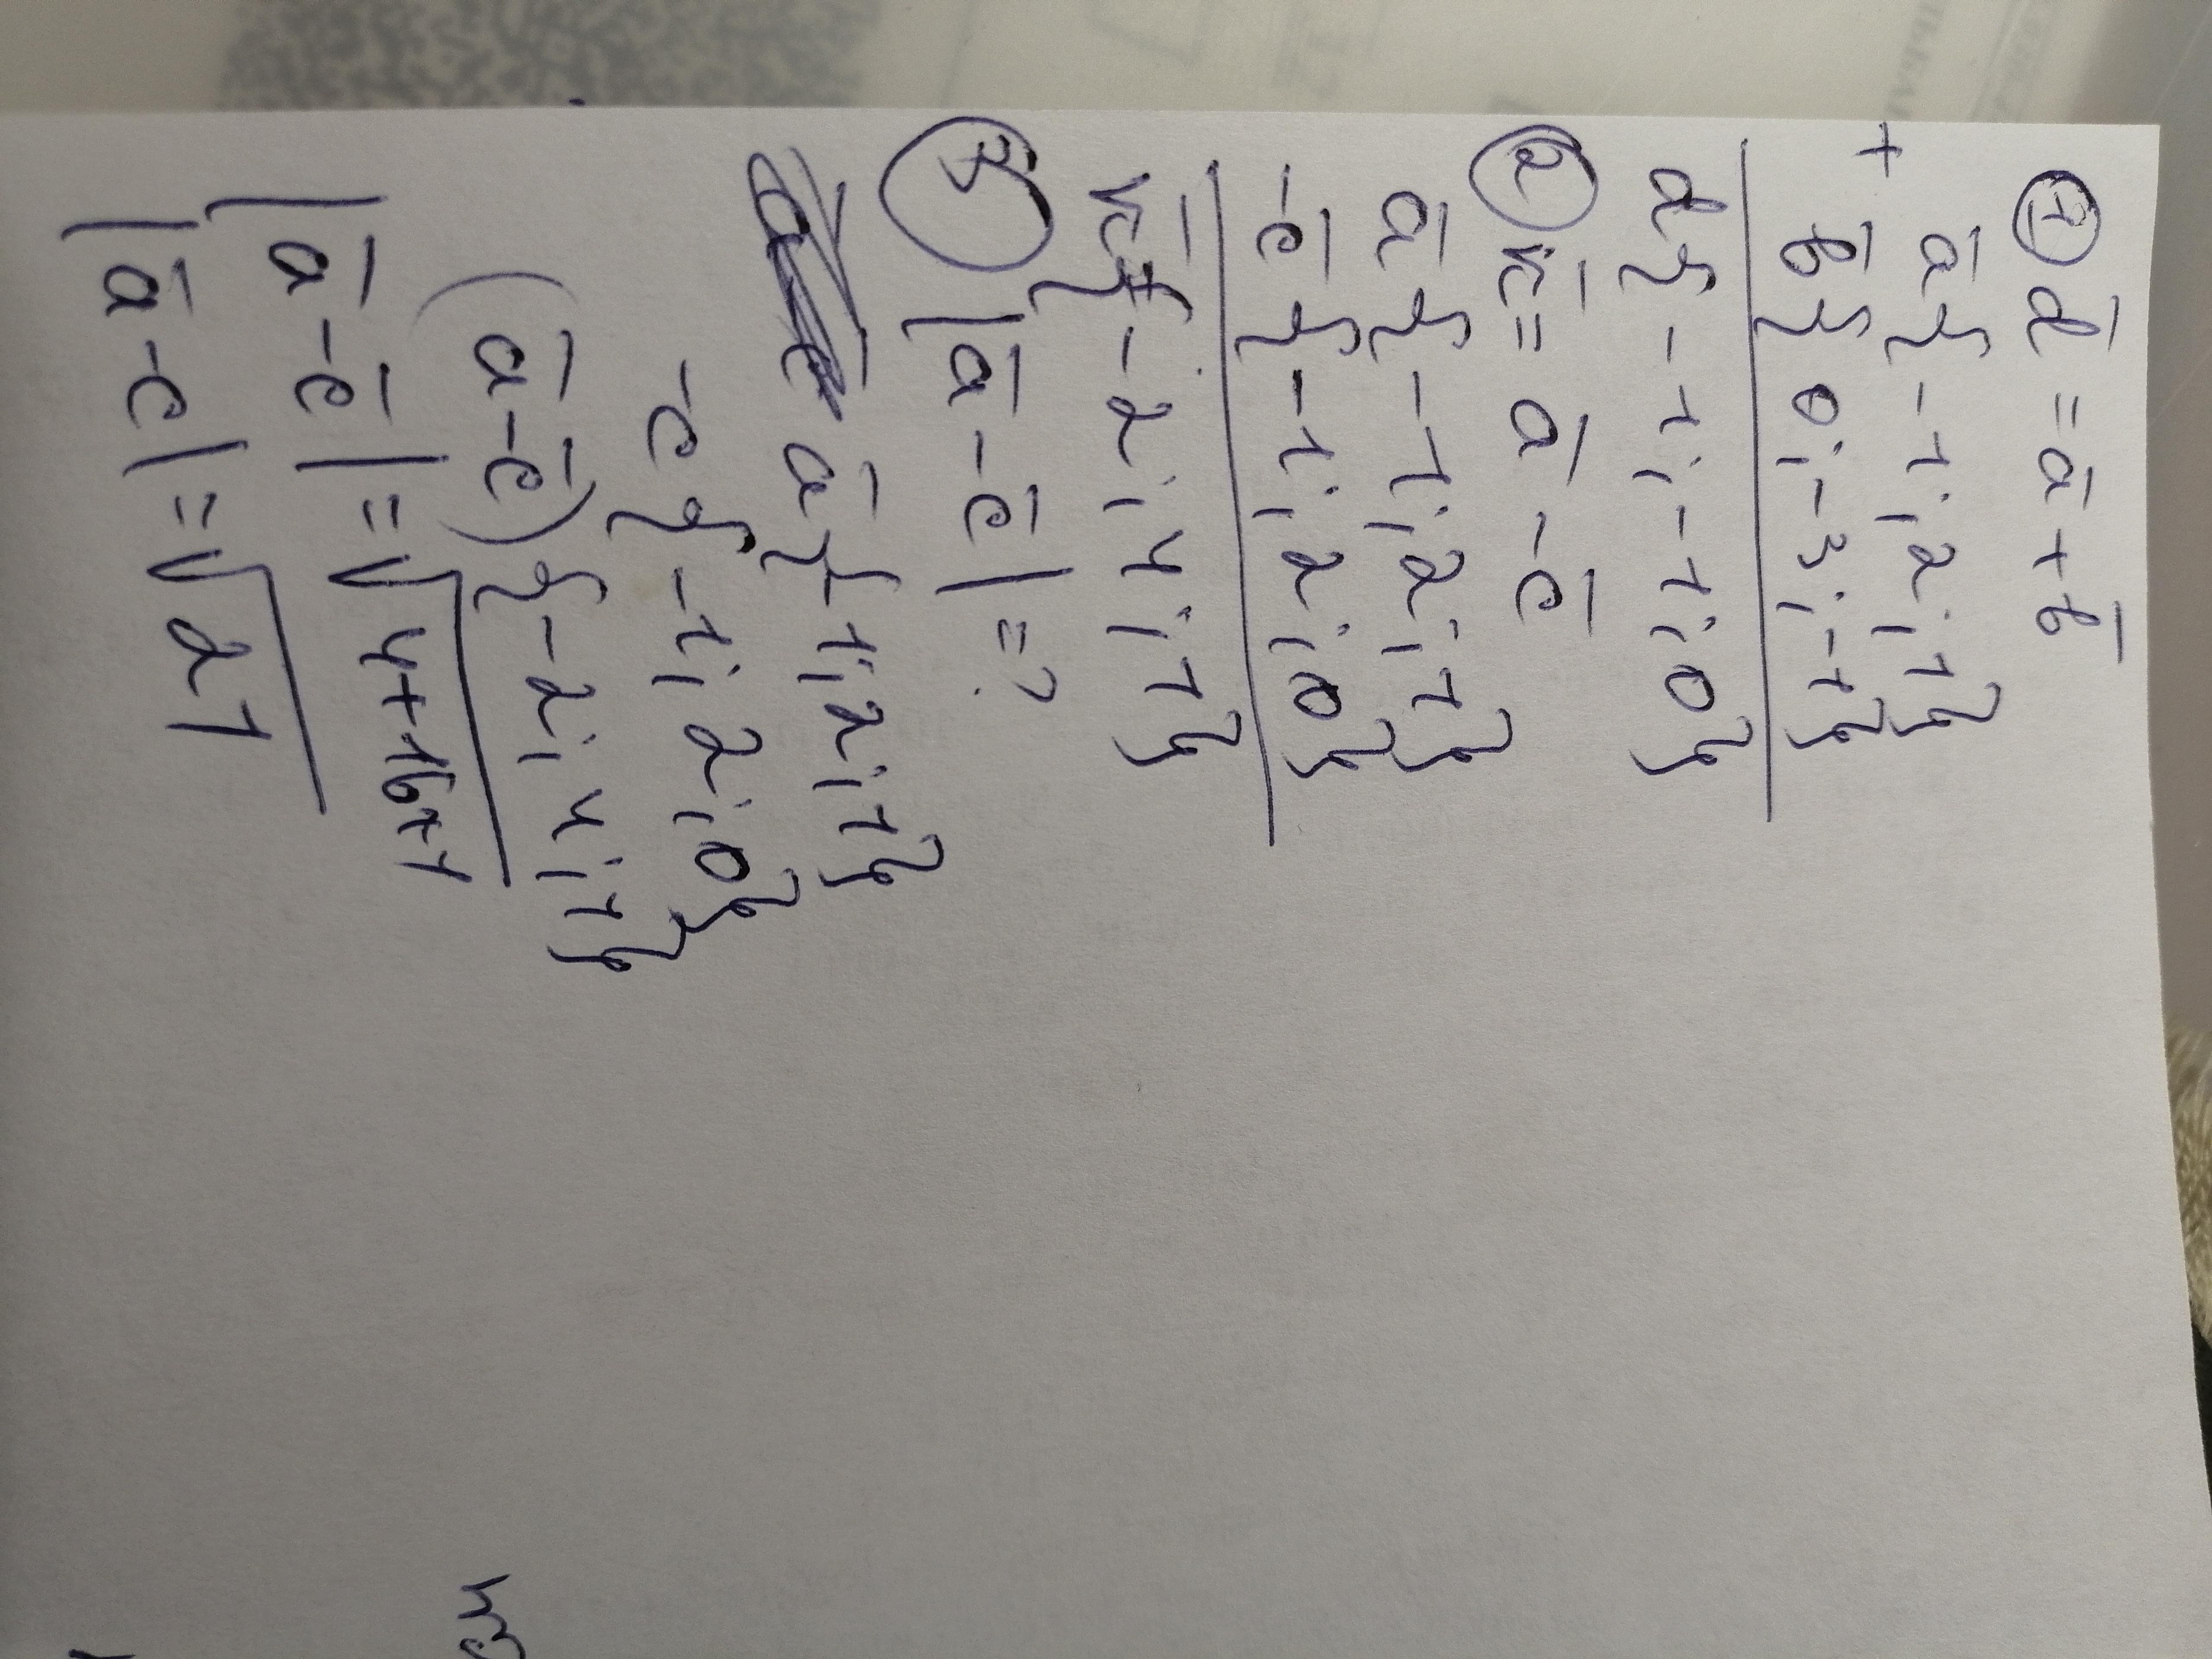 ① d̄ = ā + b̄
ā{-1; 2; 1}
+ b̄{0; -3; -1}
d{-1; -1; 0}
② k̄ = ā - c̄
ā{-1; 2; 1}
-c̄{-1; 2; 0}
k̄{-2; 4; 1}
|ā - c̄| = ?
ā{-1; 2; 1}
-c{-1; 2; 0}
(ā - c̄){-2; 4; 1}
|ā - c̄| = √4+16+1
|ā - c| = √21